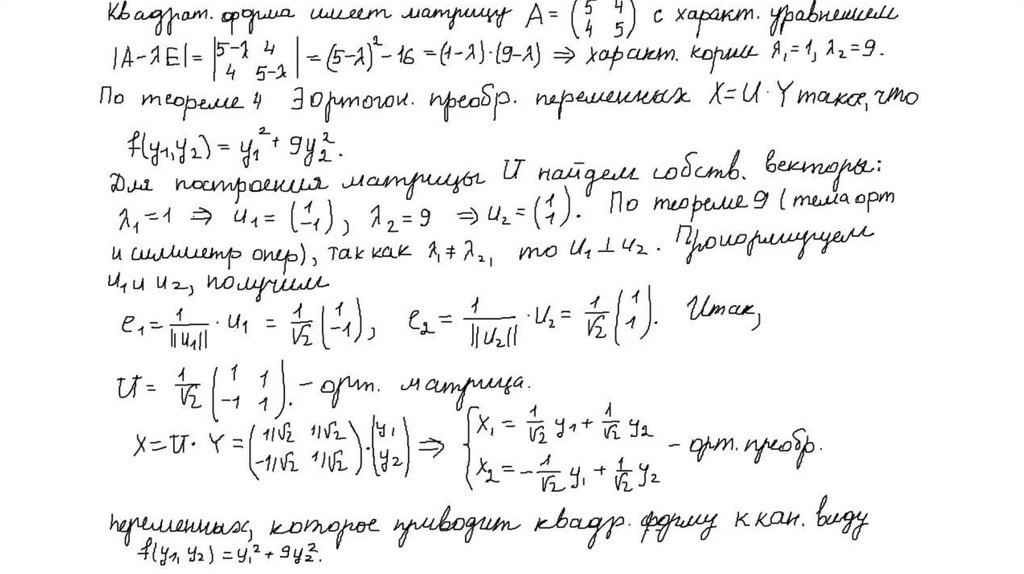 Квадрат. форма имеет матрицу A = (5 4 4 5) с характ. уравнением
|A-λE| = |5-λ 4 4 5-λ| = (5-λ)² - 16 = (1-λ)·(9-λ) ⇒ характ. корни λ₁=1, λ₂=9.
По теореме 4 ∃ ортогон. преобр. переменных X = U · Y такое, что
f(y₁,y₂) = y₁² + 9y₂².
Для построения матрицы U найдем собств. векторы:
λ₁=1 ⇒ u₁ = (1 -1), λ₂=9 ⇒ u₂ = (1 1). По теореме 9 (тема орт
и симметр опер), так как λ₁≠λ₂, то u₁⊥u₂. Пронормируем
u₁ и u₂, получим
e₁ = 1/||u₁|| · u₁ = 1/√2 (1 -1), e₂ = 1/||u₂|| · u₂ = 1/√2 (1 1). Итак,
U = 1/√2 (1 1 -1 1). - орт. матрица.
X = U · Y = (1/√2 1/√2 -1/√2 1/√2)·(y₁ y₂) ⇒ { x₁ = 1/√2 y₁ + 1/√2 y₂ x₂ = -1/√2 y₁ + 1/√2 y₂ - орт. преобр.
переменных, которое приводит квадр. форму к кан. виду
f(y₁, y₂) = y₁² + 9y₂².